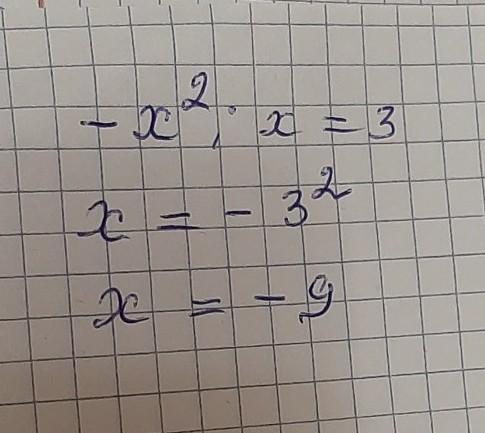 -x²; x = 3
x = - 3²
x = - 9